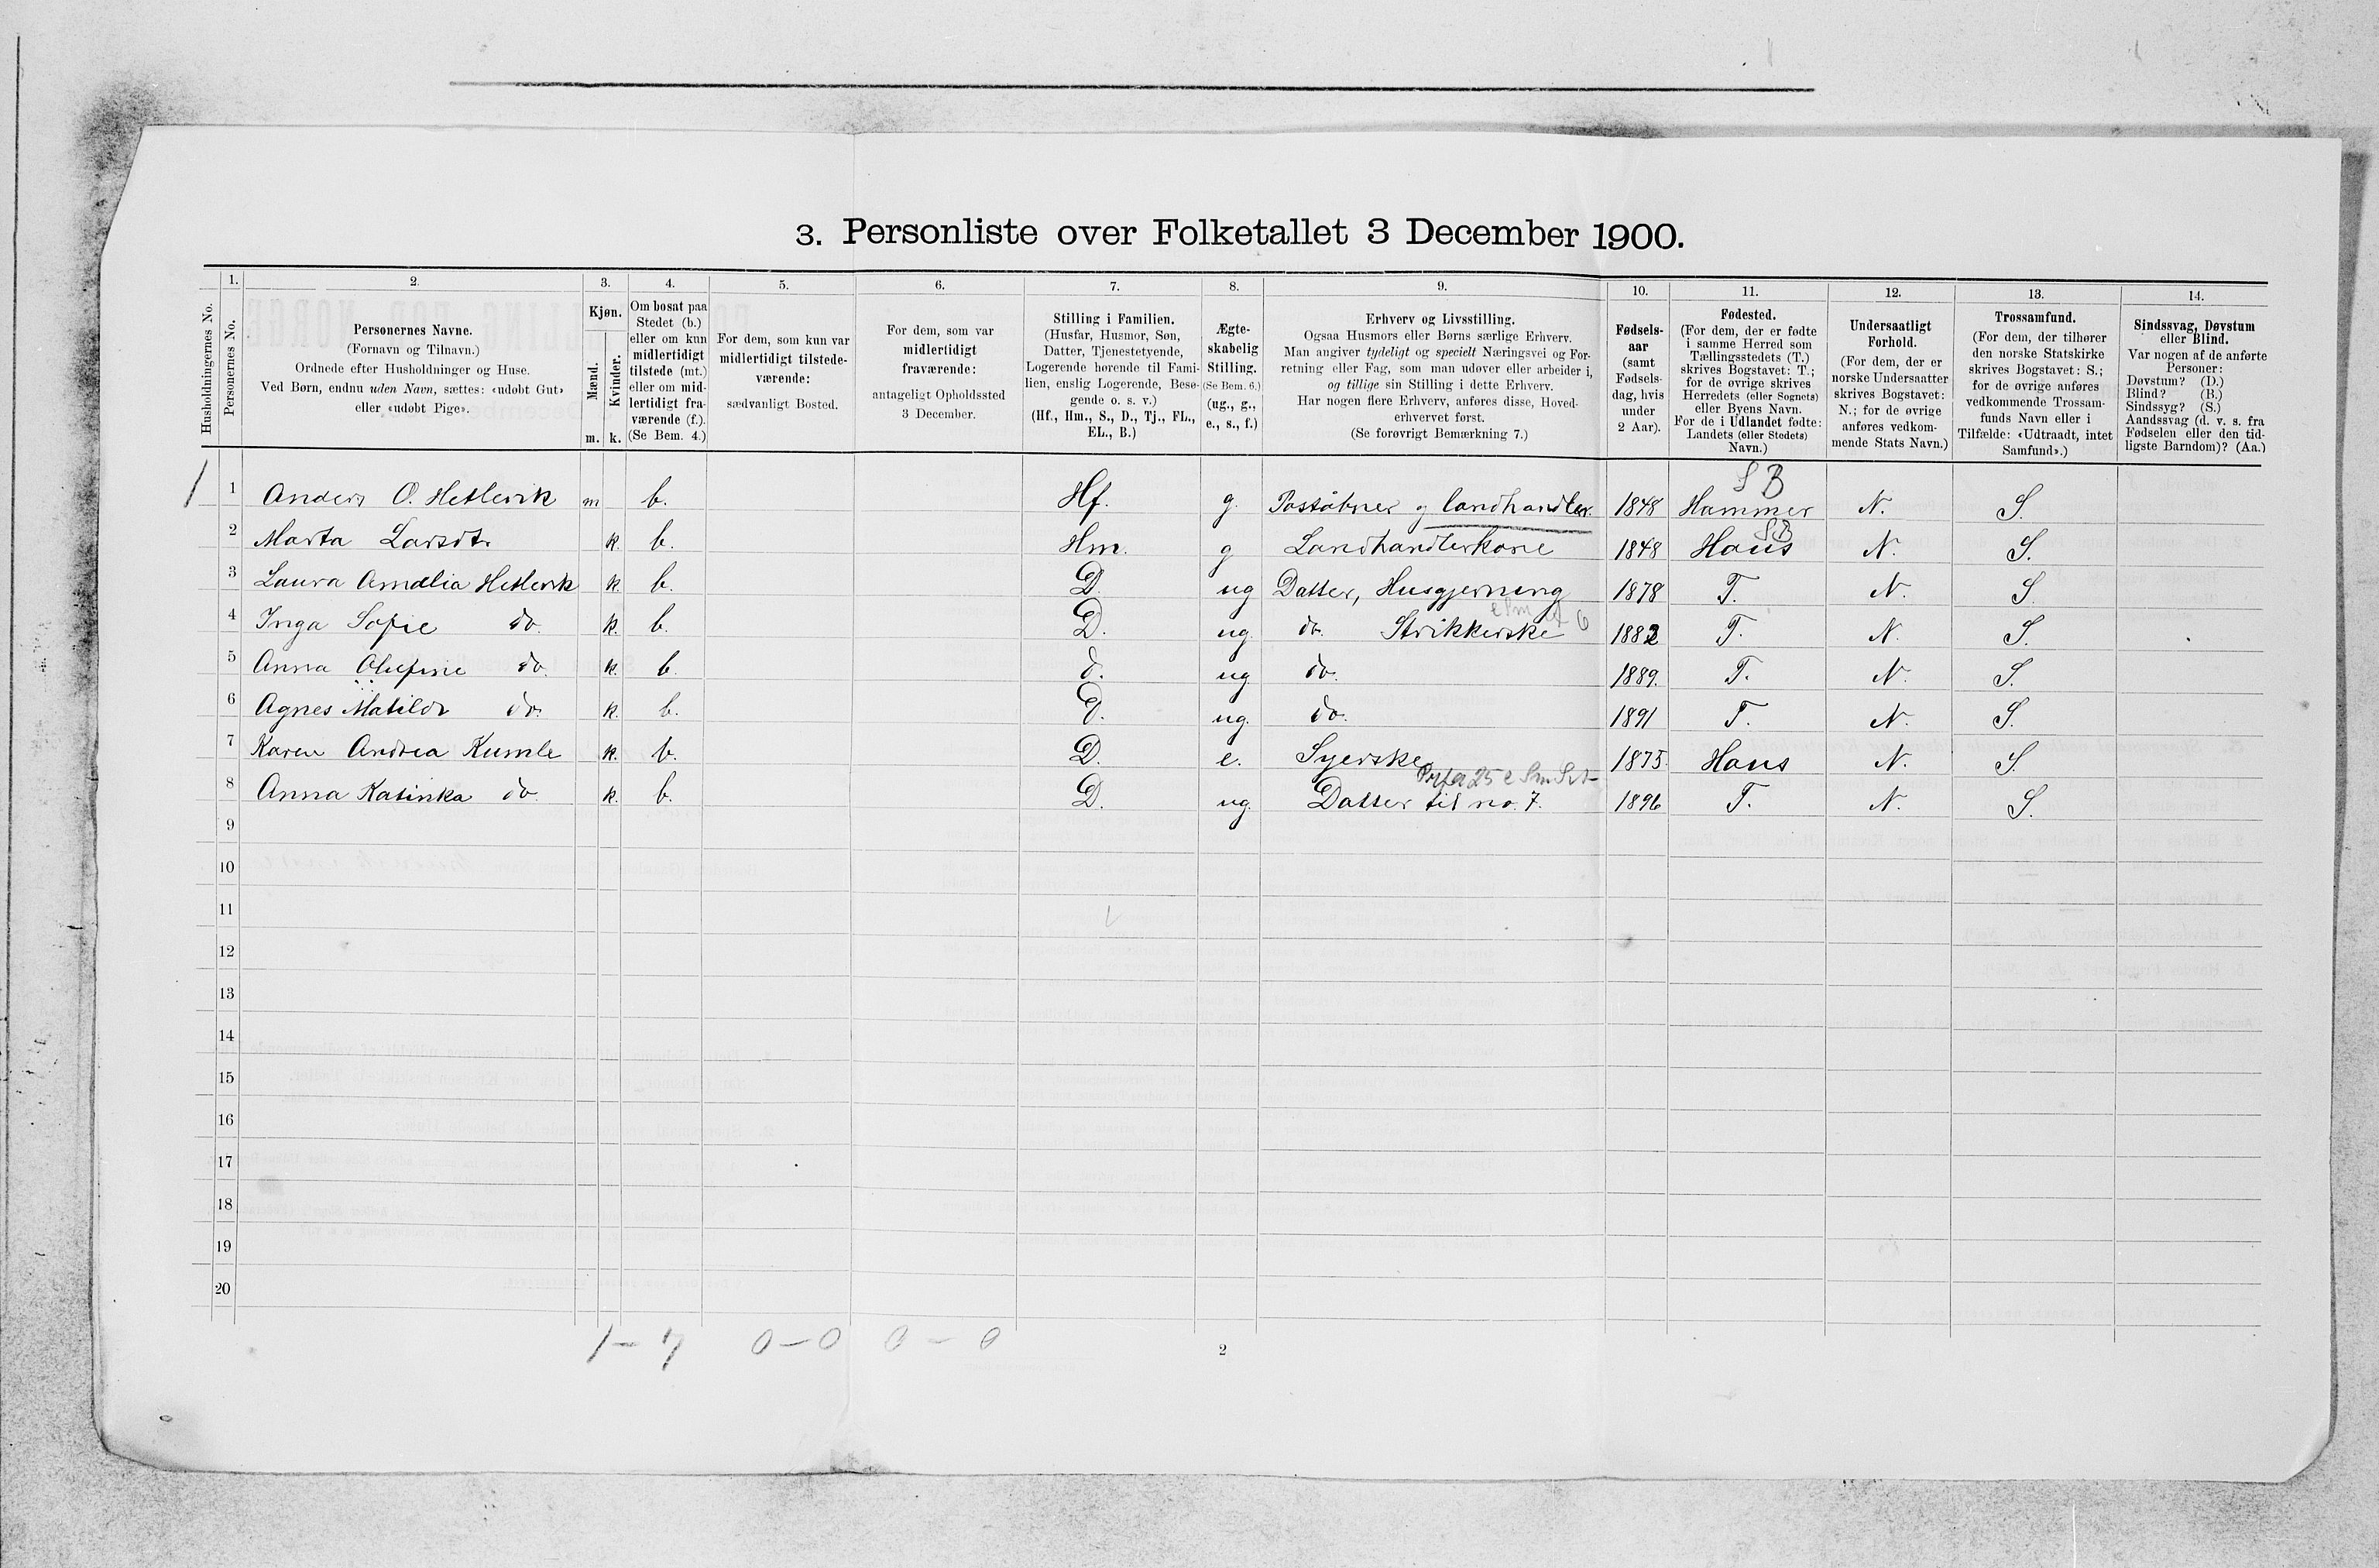 3. Personliste over Folketallet 3 December 1900.
1. 2. 3. 4. 5. 6. 7. 8. 9. 10. 11. 12. 13. 14.
Husholdningernes No.
Personernes No.
Personernes Navne.
(Fornavn og Tilnavn.)
Ordnede efter Husholdninger og Huse.
Ved Børn, endnu uden Navn, sættes: «udøbt Gut»
eller «udøbt Pige».
Kjøn.
Mænd.
Kvinder.
m. k.
Om bosat paa
Stedet (b.)
eller om kun
midlertidigt
tilstede (mt.)
eller om mid-
lertidigt fra-
værende (f.).
(Se Bem. 4.)
For dem, som kun var
midlertidigt tilstede-
værende:
sædvanligt Bosted.
For dem, som var
midlertidigt
fraværende:
antageligt Opholdssted
3 December.
Stilling i Familien.
(Husfar, Husmor, Søn,
Datter, Tjenestetyende,
Logerende hørende til Fami-
lien, enslig Logerende, Besø-
gende o. s. v.)
(Hf., Hm., S., D., Tj., FL.,
EL., B.)
Ægte-
skabelig
Stilling.
(Se Bem. 6.)
(ug., g.,
e., s., f.)
Erhverv og Livsstilling.
Ogsaa Husmors eller Børns særlige Erhverv.
Man angiver tydeligt og specielt Næringsvei og For-
retning eller Fag, som man udøver eller arbeider i,
og tillige sin Stilling i dette Erhverv.
Har nogen flere Erhverv, anføres disse, Hoved-
erhvervet først.
(Se forøvrigt Bemærkning 7.)
Fødsels-
aar
(samt
Fødsels-
dag, hvis
under
2 Aar).
Fødested.
(For dem, der er fødte
i samme Herred som
Tællingsstedets (T.)
skrives Bogstavet: T.;
for de øvrige skrives
Herredets (eller Sognets)
eller Byens Navn.
For de i Udlandet fødte:
Landets (eller Stedets)
Navn.)
Undersaatligt
Forhold.
(For dem, der er
norske Undersaatter
skrives Bogstavet:
N.; for de øvrige
anføres vedkom-
mende Stats Navn.)
Trossamfund.
(For dem, der tilhører
den norske Statskirke
skrives Bogstavet: S.;
for de øvrige anføres
vedkommende Trossam-
funds Navn eller i
Tilfælde: «Udtraadt, intet
Samfund».)
Sindssvag, Døvstum
eller Blind.
Var nogen af de anførte
Personer:
Døvstum? (D.)
Blind? (B.)
Sindssyg? (S.)
Aandssvag (d. v. s. fra
Fødselen eller den tid-
ligste Barndom)? (Aa.)
S B
1 1 Anders O. Hetlevik m b. Hf. g. Poståbner og landhandler. 1848 Hammer N. S.
S B
2 Marta Larsdt. k. b. Hm. g Landhandlerkone 1848 Haus N. S.
3 Laura Amalia Hetlevik k. b. D. ug Datter, Husgjerning 1878 T. N. S.
4 Inga Sofie do. k. b. D. ug. do. Strikkerske 1882 T. N. S.
5 Anna Olufine do. k. b. d. ug. do. 1889. T. N. S.
6 Agnes Matilde do. k. b. D. ug. do. 1891 T. N. S.
7 Karen Andrea Kumle k. b. D. e. Syerske 1875. Haus N. S.
8 Anna Katinka do. k. b. D. ug. Datter til no. 7. 1896 T. N. S.
9
10
11
12
13
14
15
16
17
18
19
20
1 - 7 0 - 0 0 - 0
2